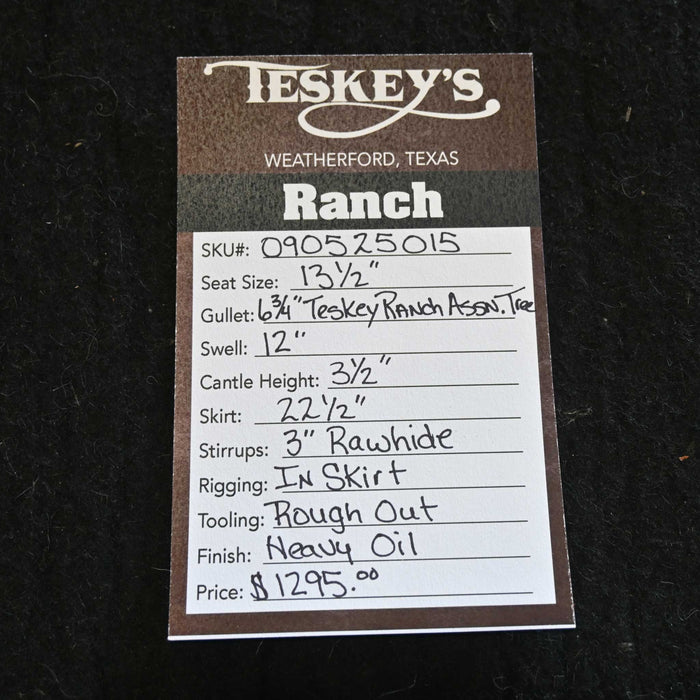 TESKEY'S
WEATHERFORD, TEXAS
Ranch
SKU#: 090525015
Seat Size: 13 1/2"
Gullet: 6 3/4" Teskey Ranch Assn. Tree
Swell: 12"
Cantle Height: 3 1/2"
Skirt: 22 1/2"
Stirrups: 3" Rawhide
Rigging: In Skirt
Tooling: Rough Out
Finish: Heavy Oil
Price: $1295.00